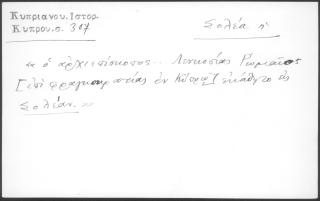 Κυπριανου.Ιστορ.
Κυπρου.σ. 367
Σολέα ἡ
" ὁ ἀρχιεπίσκοπος... Λευκοσίας Ρωμαῖος
[ἐπὶ φραγκοκρατίας ἐν Κύπρῳ] ἐκάθητο εἰς
Σολέαν. "